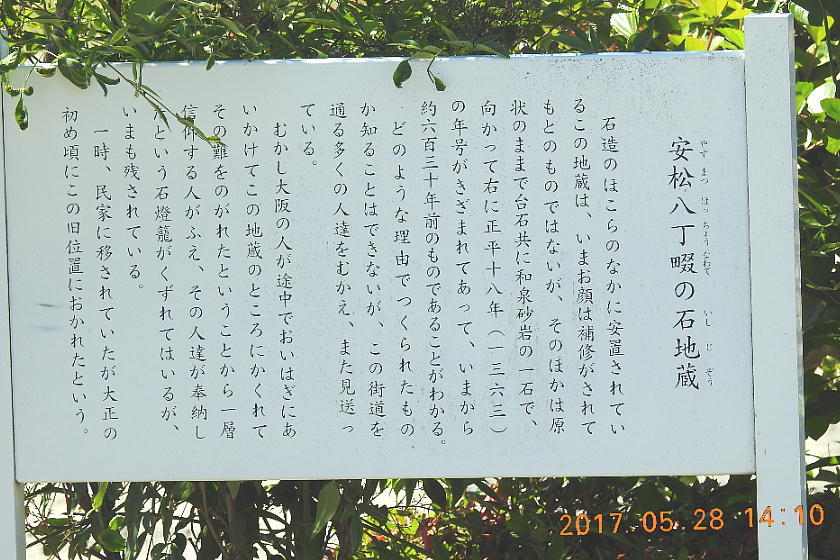 安松八丁畷の石地蔵
やすまつはっちょうなわて いしじぞう
石造のほこらのなかに安置されてい
るこの地蔵は いまお顔は補修がされて
もとのものではないが、そのほかは原
状のままで台石共に和泉砂岩の一石で、
向かって右に正平十八年(一三六三)
の年号がきざまれてあって、いまから
約六百三十年前のものであることがわかる。
どのような理由でつくられたもの
か知ることはできないが、この街道を
通る多くの人達をむかえ、また見送っ
ている。
むかし大阪の人が途中でおいはぎにあ
いかけてこの地蔵のところにかくれて
その難をのがれたということから一層
信仰する人がふえ、その人達が奉納し
たという石燈籠がくずれてはいるが、
いまも残されている。
一時、民家に移されていたが大正の
初め頃にこの旧位置におかれたという。
2017.05.28 14:10